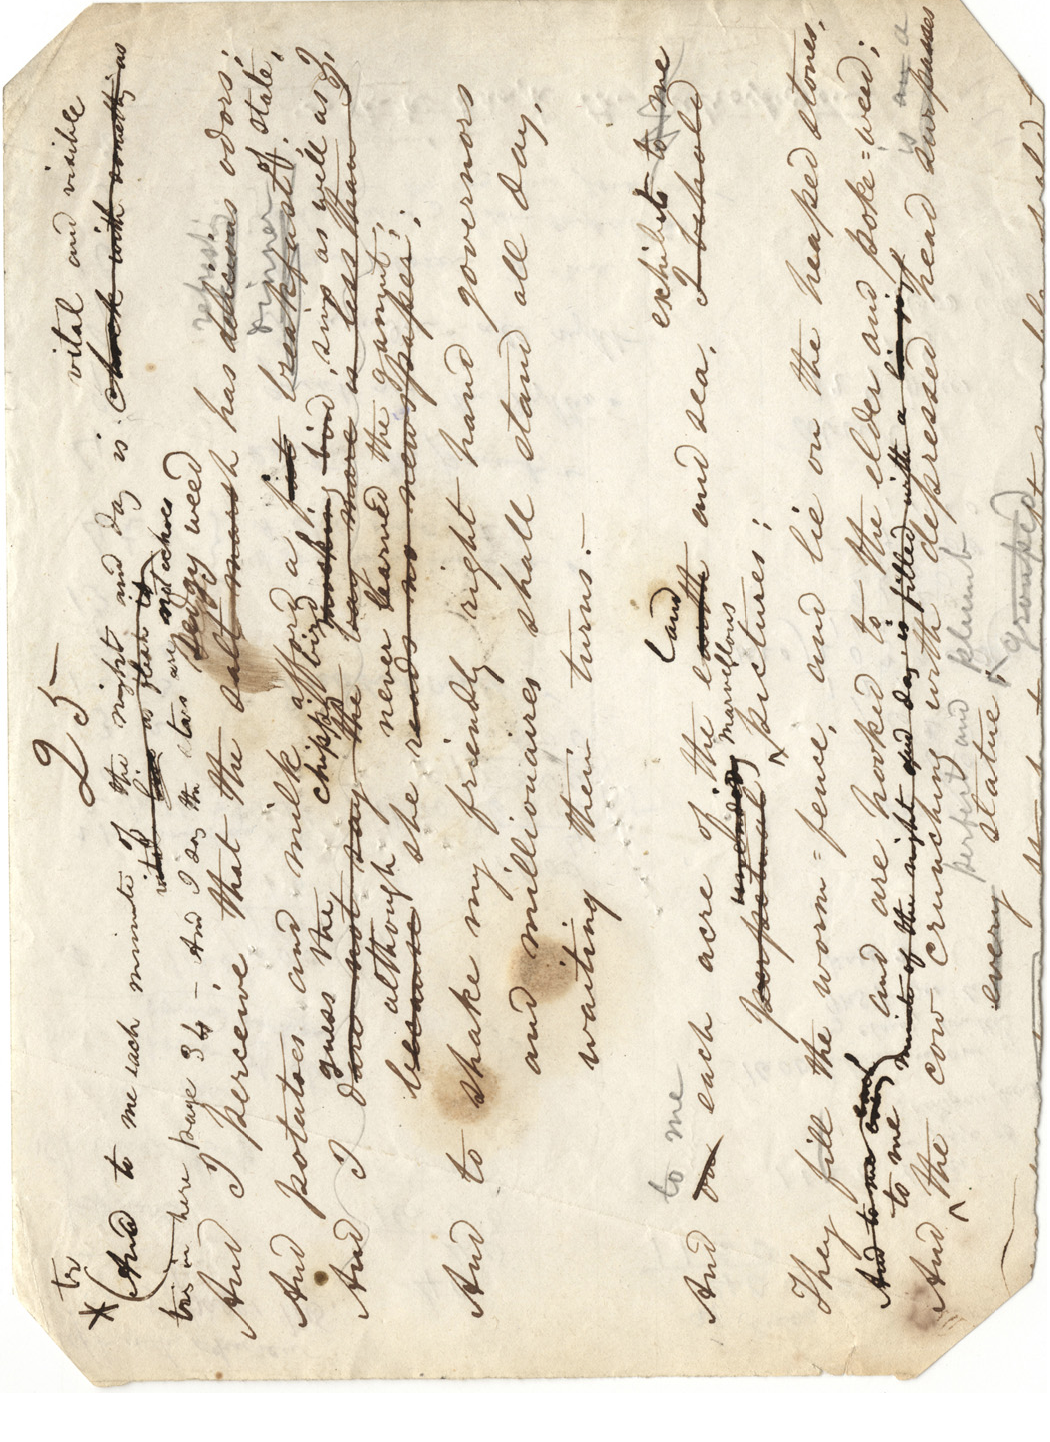 25
* tr
(And to me each minute of the night and day is chock with something as vital and visible
vital live as flesh is
tris in here page 34 – And I say the stars are not echoes
And I perceive that the salt marsh sedgy weed has delicious refreshing odors;
And potatoes and milk afford a fit breakfast dinner of state,
And I guess the chipping bird mocking bird sings as well as I,
dare not say the law mare is less than I,
although never learned the gamut;
because she reads no newspaper;
And to shake my friendly right hand governors
and millionaires shall stand all day,
waiting their turns.—
And to me
on each acre of the earth land and sea, I behold exhibits to me
perpetual unending marvellous pictures;
They fill the worm-fence, and lie on the heaped stones,
and are hooked to the elder and poke-weed;
And to me every
minute of the night and day is filled with a
And to me the cow crunching with depressed head surpasses is an a
every perfect and plumb statue; grouped